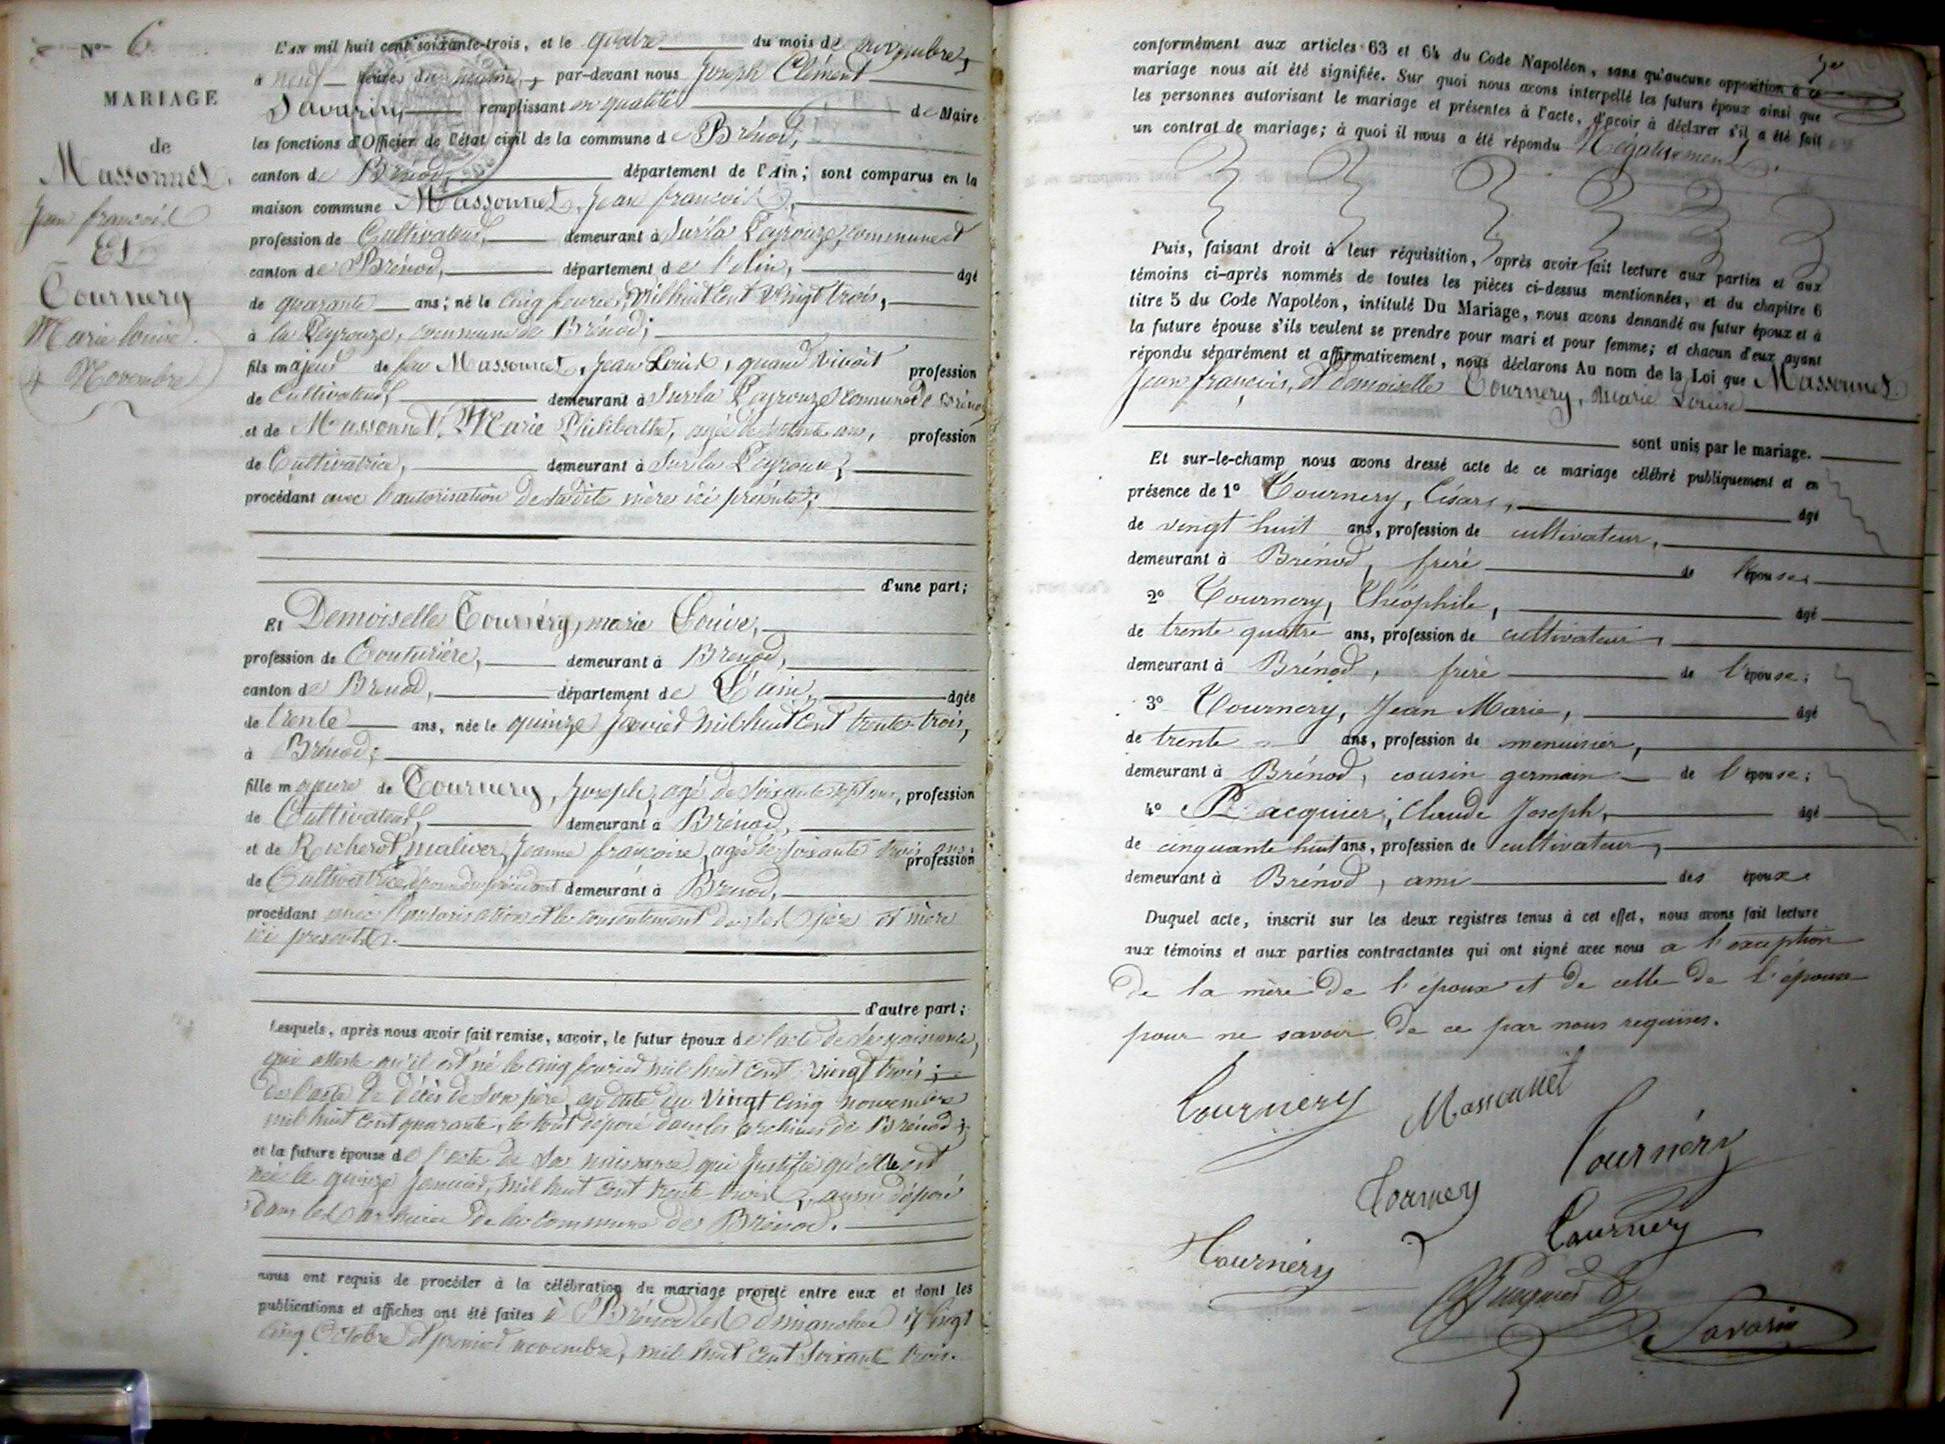 N° 6
MARIAGE
de
Massonnet
Jean françois
Et
Tournery
Marie louise.
4 Novembre
L'AN mil huit cent soixante-trois, et le quatre du mois de novembre,
à neuf heures du matin, par-devant nous Joseph Clément
Savarin, remplissant en qualité de Maire
les fonctions d'Officier de l'état civil de la commune de Brénod,
canton de Brénod, département de l'Ain; sont comparus en la
maison commune Massonnet, Jean françois,
profession de Cultivateur, demeurant à Sur la Leyrouze, commune et
canton de Brénod, département de l'Ain, âgé
de quarante ans; né le cinq fevrier mil huit cent vingt trois,
à la Leyrouze, commune de Brénod;
fils majeur de feu Massonnet, Jean Louis, quand vivait profession
de Cultivateur, demeurant à Sur la Leyrouze commune de Brénod
et de Massonnet, Marie Philiberthe, agée de ans, profession
de Cultivatrice, demeurant à Sur la Leyrouze;
procédant avec l'autorisation de sa dite mère ici présente;
d'une part;
Et Demoiselle Tournéry, marie Louise,
profession de Couturière, demeurant à Brenod,
canton de Brenod, département de L'ain, âgée
de trente ans, née le quinze Janvier mil huit cent trente trois,
à Brenod;
fille majeure de Tournery, Joseph, agé de soixante sept ans, profession
de Cultivateur, demeurant à Brénod,
et de Richerot, Jeanne françoise, agée de soixante trois ans, profession
de Cultivatrice épouse du précédent demeurant à Brenod,
procédant avec l'autorisation et le consentement de ses père et mère
ici présents.
d'autre part;
Lesquels, après nous avoir fait remise, savoir, le futur époux de l'acte de sa naissance,
qui atteste qu'il est né le cinq fevrier mil huit cent vingt trois;
de l'acte de décès de son père, en date du vingt cinq novembre
mil huit cent quarante, le tout déposé dans les archives de Brénod;
et la future épouse de l'acte de sa naissance qui justifie qu'elle est
née le quinze Janvier, mil huit cent trente trois, aussi déposé
dans les archives de la commune de Brénod.
nous ont requis de procéder à la célébration du mariage projeté entre eux et dont les
publications et affiches ont été faites à Brénod les dimanches vingt
cinq Octobre et premier novembre, mil huit cent soixante trois.
conformément aux articles 63 et 64 du Code Napoléon, sans qu'aucune opposition à ce
mariage nous ait été signifiée. Sur quoi nous avons interpellé les futurs époux ainsi que
les personnes autorisant le mariage et présentes à l'acte, d'avoir à déclarer s'il a été fait
un contrat de mariage; à quoi il nous a été répondu Négativement.
Puis, faisant droit à leur réquisition, après avoir fait lecture aux parties et aux
témoins ci-après nommés de toutes les pièces ci-dessus mentionnées, et du chapitre 6
titre 5 du Code Napoléon, intitulé Du Mariage, nous avons demandé au futur époux et à
la future épouse s'ils veulent se prendre pour mari et pour femme; et chacun d'eux ayant
répondu séparément et affirmativement, nous déclarons Au nom de la Loi que Massonnet
Jean françois, et Demoiselle Tournery, Marie Louise
sont unis par le mariage.
Et sur-le-champ nous avons dressé acte de ce mariage célébré publiquement et en
présence de 1° Tournery, César, âgé
de vingt huit ans, profession de cultivateur,
demeurant à Brénod, frère de l'épouse;
2° Tournery, Théophile, âgé
de trente quatre ans, profession de cultivateur,
demeurant à Brénod, frère de l'épouse;
3° Tournery, Jean Marie, âgé
de trente ans, profession de menuisier,
demeurant à Brénod, cousin germain de l'épouse;
4° Racquier, Claude Joseph, âgé
de cinquante huit ans, profession de cultivateur,
demeurant à Brénod, ami des époux
Duquel acte, inscrit sur les deux registres tenus à cet effet, nous avons fait lecture
aux témoins et aux parties contractantes qui ont signé avec nous a l'exception
de la mère de l'époux et de celle de l'épouse
pour ne savoir de ce par nous requises.
Tournery Massonnet
Tournéry
Tournery
Tournéry Tournery
Savarin